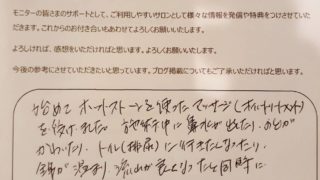 モニターの皆さまのサポートとして、ご利用しやすいサロンとして様々な情報を発信や特典をつけさせていた
だきます。これからのお付き合いもあわせてよろしくお願いいたします。
よろしければ、感想をいただければと思います。よろしくお願いします。
今後の参考にさせていただきたいと思っています。ブログ掲載についてもご了承いただければと思います。
始めて ホットストーンを使ったマッサージ
を受けました。施術中に鼻水が出たり、のどが
かわいたり、トイレ(排尿)に行きたくなったり
流れが良くなったと同時に